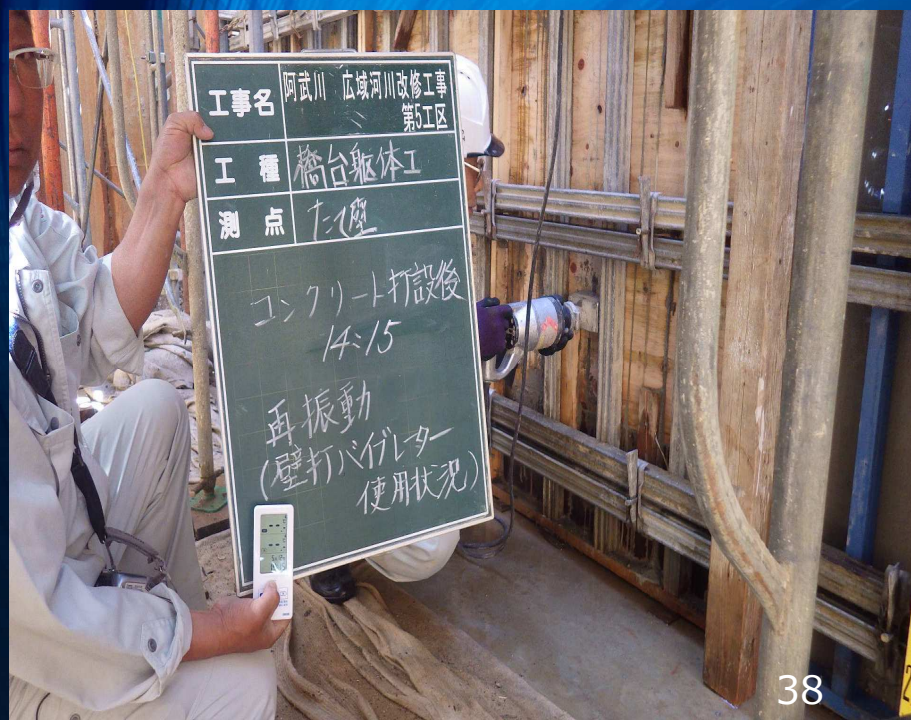 工事名 阿武川 広域河川改修工事
第5工区
工種 橋台躯体工
測点 たて壁
コンクリート打設後
14:15
再振動
(壁打バイブレーター
使用状況)
38